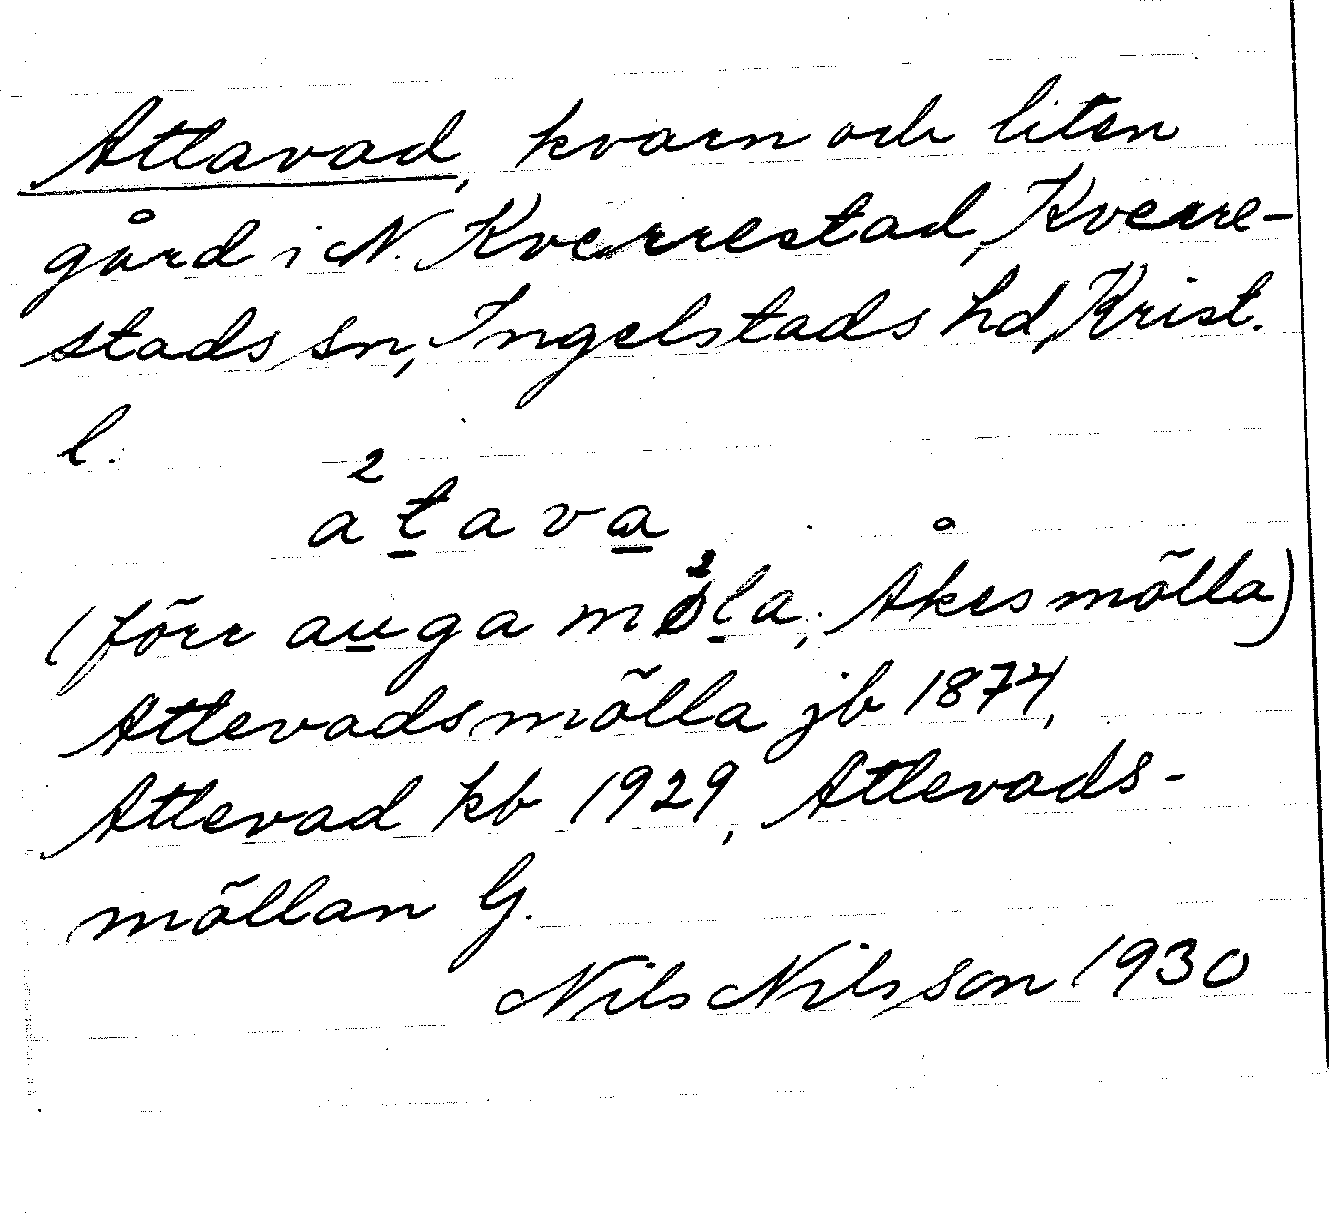 Attavad, kvarn och liten
gård i N. Kverrestad, Kverre-
stads sn, Ingelstads hd, Krist.
l.
a²t̲ava̲
(förr au̲ga mö²l̲a; Åkes mölla)
Attevadsmölla jb 1874,
Attevad kb 1929, Attevads-
möllan G.
Nils Nilsson 1930